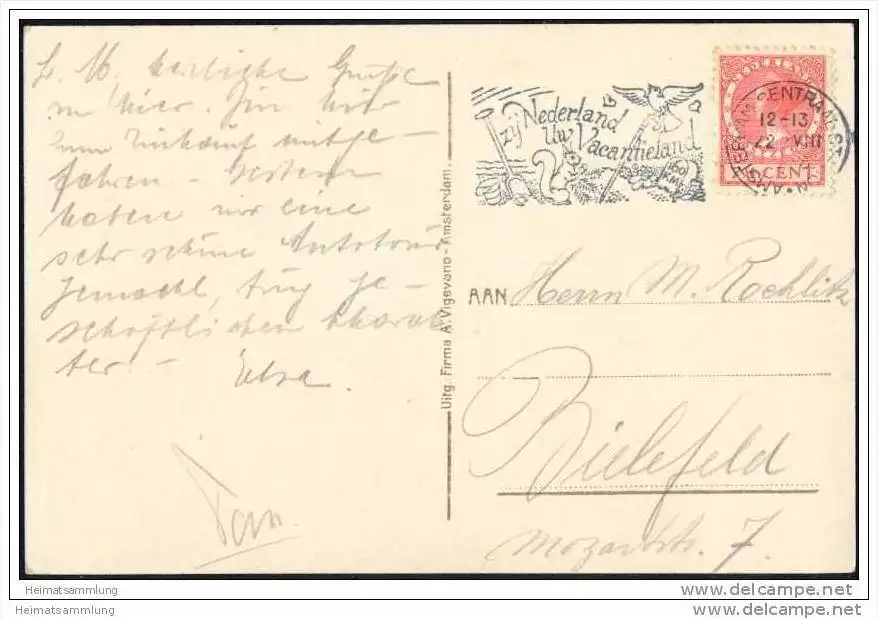 L. M., herzliche Grüße
von hier. Bin hier
zum Einkauf mitge-
fahren - Gestern
haben wir eine
sehr schöne Autotour
gemacht, trug ge-
schäftlichen Charak
ter. -
Elsa.
Uitg. Firma A. Vigevano - Amsterdam.
zij Nederland
Uw Vacantieland
60 KM
NEDERLAND
CENT
AMSTERDAM CENTRAAL STATION
12-13
22 VIII
AAN Herrn M. Rochlitz
Bielefeld
Mozartstr. 7.
Heimatsammlung
Heimatsammlung
www.delcampe.net
www.delcampe.net